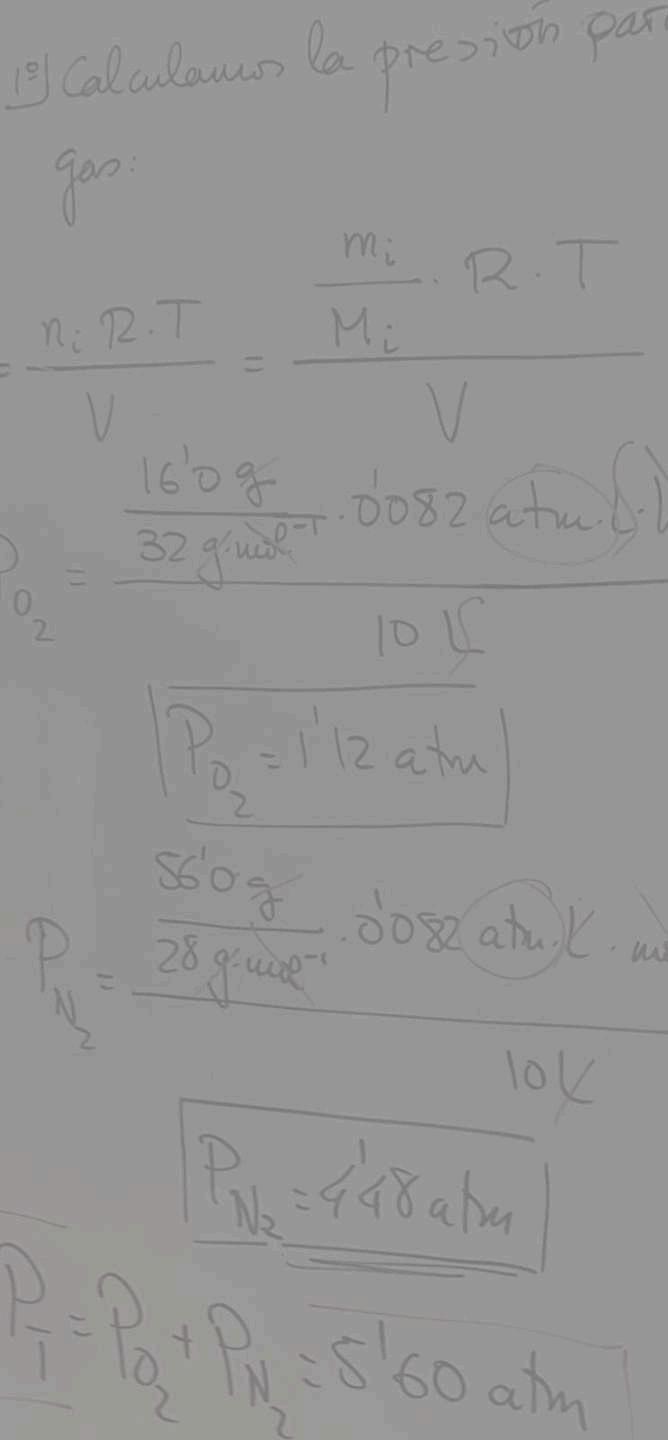 1º) Calculamos la presión
gas:
= n_i R·T / V = (m_i / M_i · R·T) / V
P_O2 = (16'0 g / 32 g·mol^-1 · 0'082 atm·L) / 10 L
P_O2 = 1'12 atm
P_N2 = (56'0 g / 28 g·mol^-1 · 0'082 atm·L) / 10 L
P_N2 = 4'48 atm
P_T = P_O2 + P_N2 = 5'60 atm